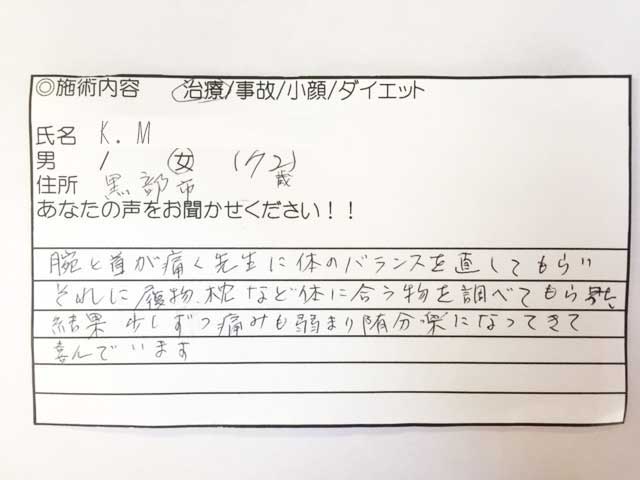 ◎施術内容 治療/事故/小顔/ダイエット
氏名 K.M
男 / 女 (72歳)
住所 黒部市
あなたの声をお聞かせください！！
腕と首が痛く先生に体のバランスを直してもらい
それに履物、枕など体に合う物を調べてもら
結果 少しずつ痛みも弱まり随分楽になってきて
喜んでいます